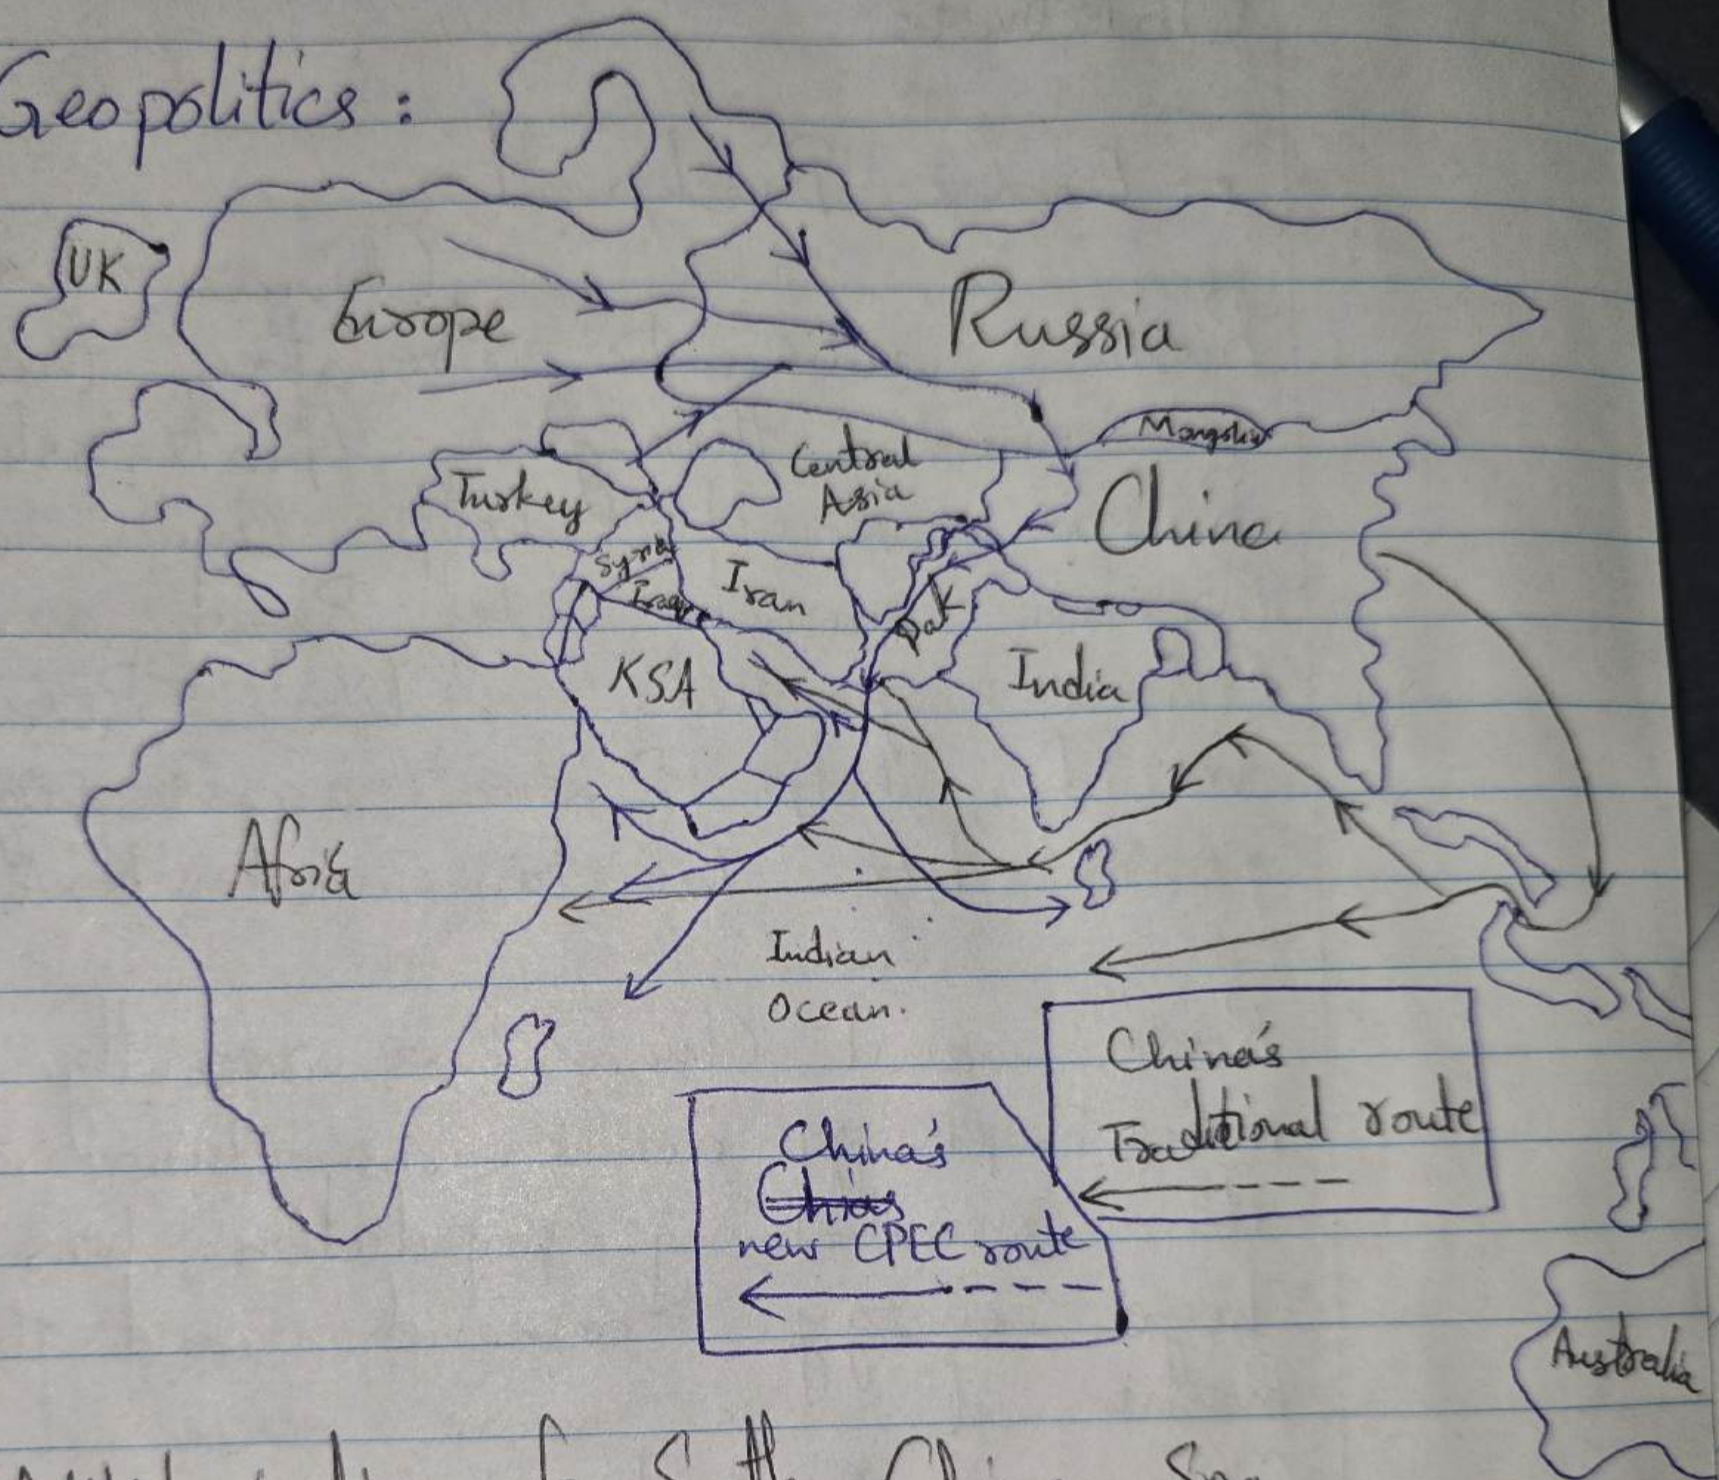 Geopolitics :
UK
Europe
Russia
Mongolia
Central
Asia
Turkey
China
Syria
Iraq
Iran
Pak
KSA
India
Africa
Indian
Ocean.
China's
Traditional route
China's
new CPEC route
Australia